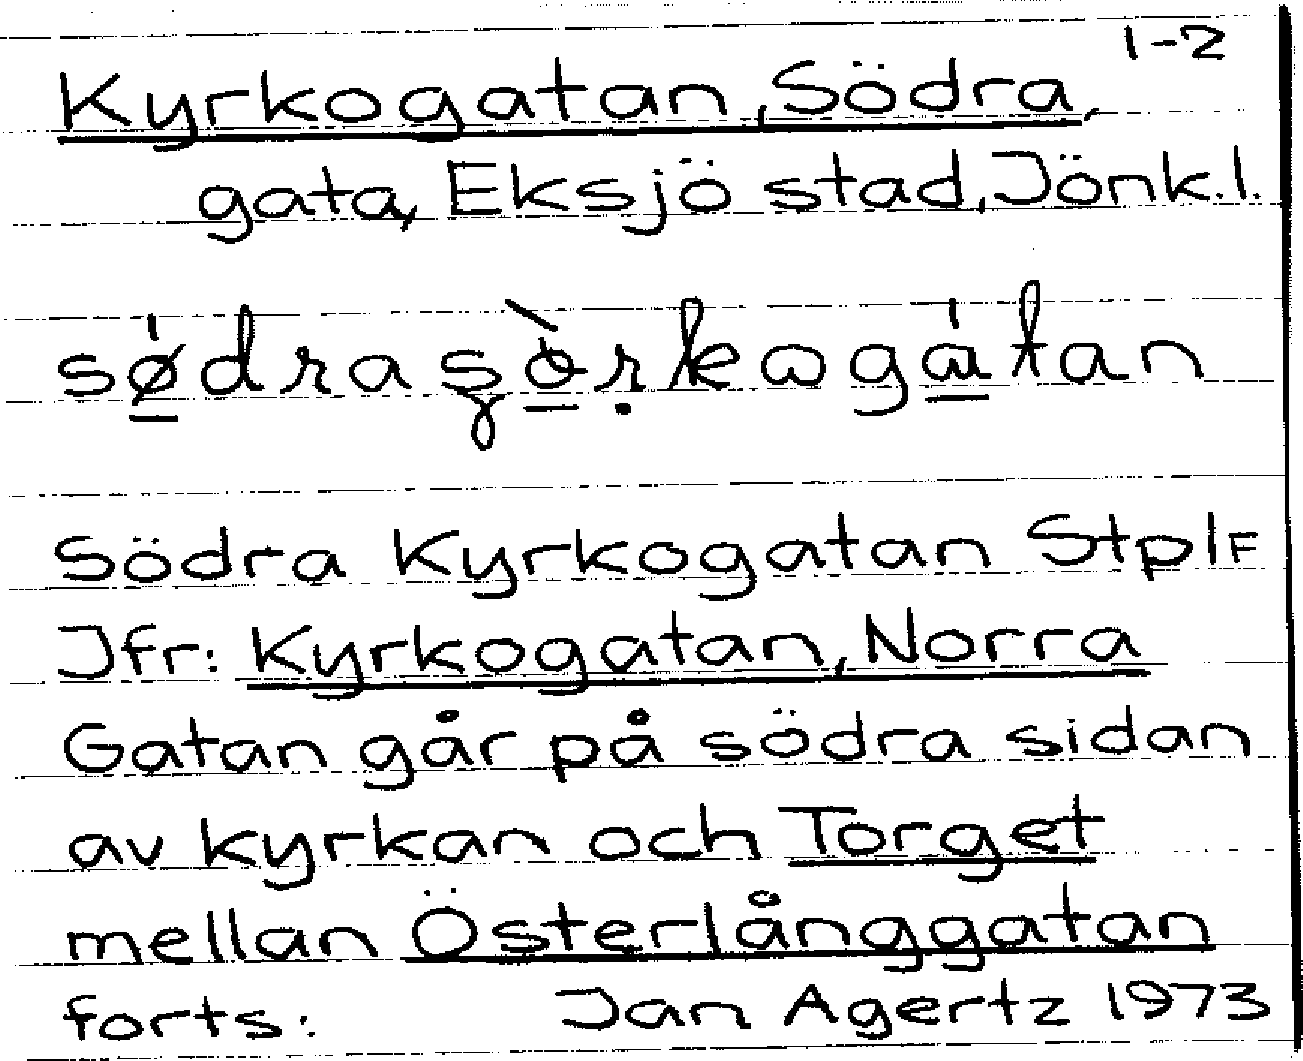 1-2
Kyrkogatan, Södra,
gata, Eksjö stad, Jönk.l.
Södra Kyrkogatan StplF
Jfr: Kyrkogatan, Norra
Gatan går på södra sidan
av kyrkan och Torget
mellan Österlånggatan
forts: Jan Agertz 1973